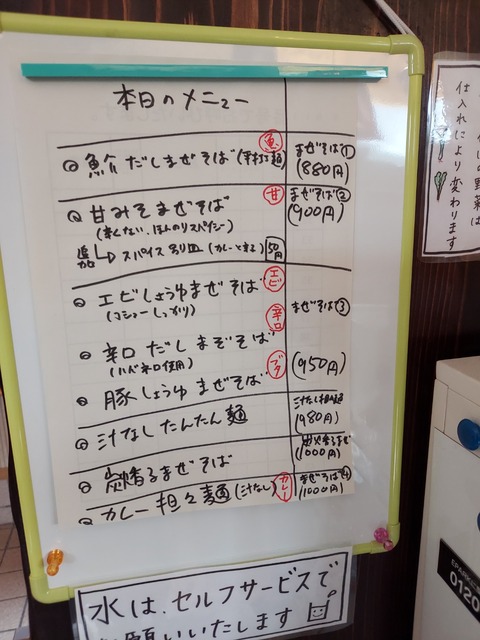 本日のメニュー
魚介だしまぜそば(平打ち麺) 魚 まぜそば①
(880円)
甘みそまぜそば 甘 まぜそば②
(辛くない、ほんのりスパイシー) (900円)
追加 スパイス別皿 (カレーで辛さ) 50円
エビしょうゆまぜそば エビ
(コショーしっかり) 辛口 まぜそば③
辛口だしまぜそば
(ハバネロ使用) ブタ (950円)
豚しょうゆまぜそば
汁なしたんたん麺 汁なし担々麺
(980円)
炭香るまぜそば 炭火香るまぜ
(1000円)
カレー担々麺(汁なし) カレー まぜそば④
(1000円)
仕入れにより
変わります
水は、セルフサービスで
お願いいたします
EPARK
0120